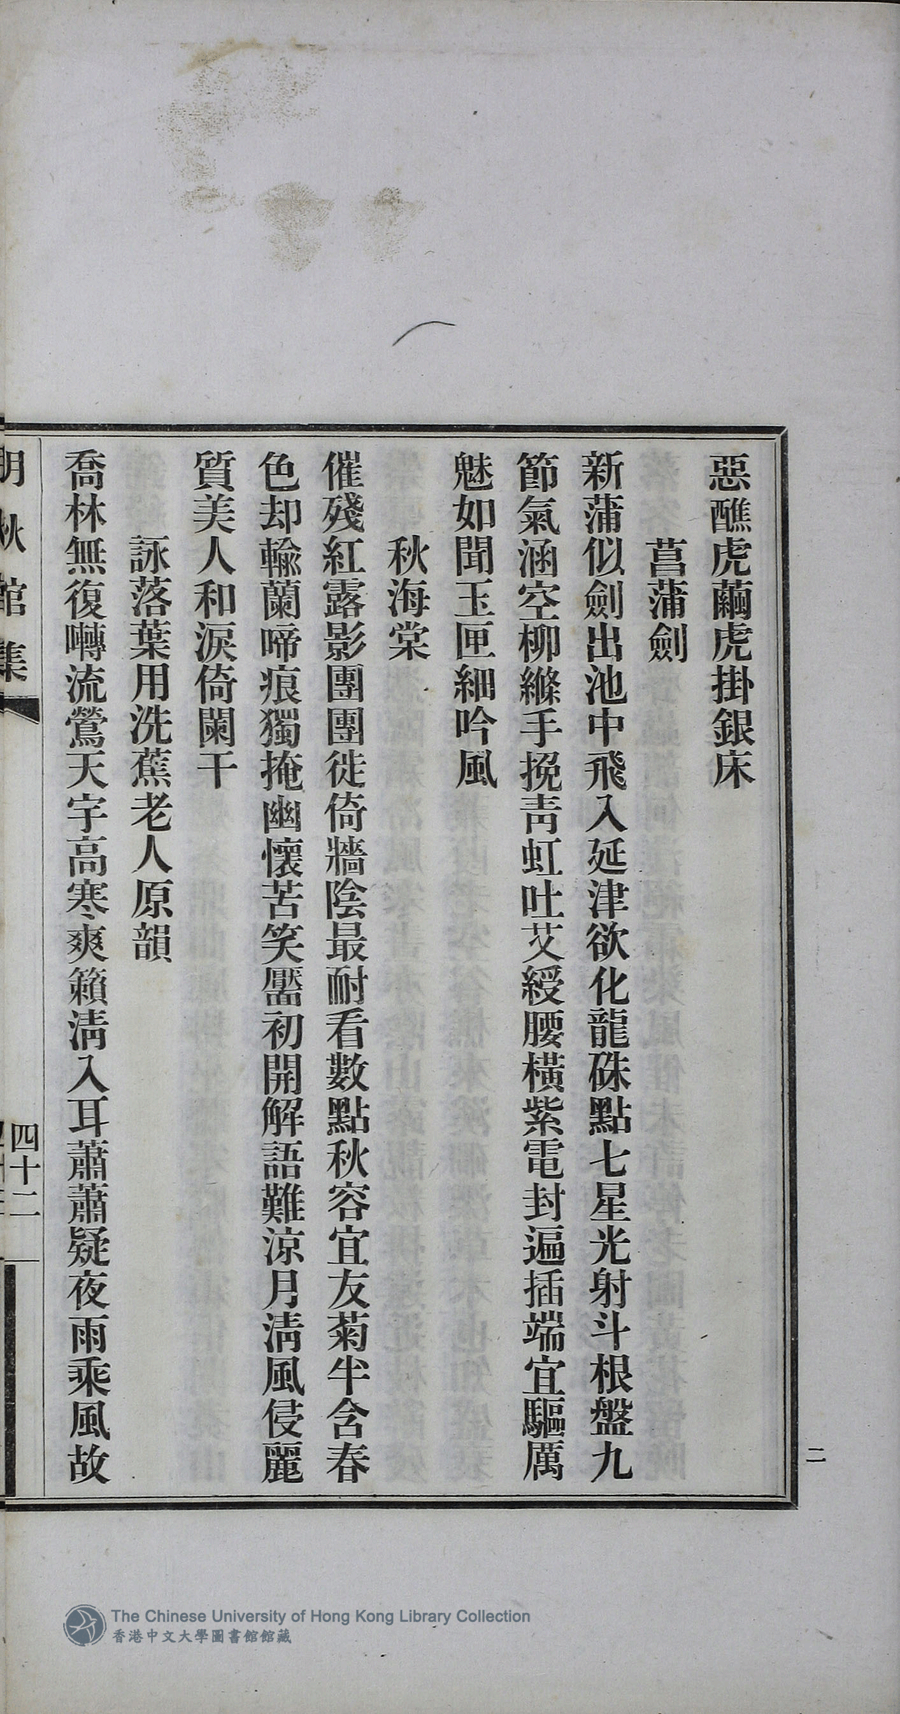 惡醮虎繭虎掛銀床
菖蒲劍
新蒲似劍出池中飛入延津欲化龍硃點七星光射斗根盤九
節氣涵空柳縧手挽靑虹吐艾綬腰橫紫電封遍插端宜驅厲
魅如聞玉匣細吟風
秋海棠
催殘紅露影團團徙倚牆陰最耐看數點秋容宜友菊半含春
色却輸蘭啼痕獨掩幽懷苦笑靨初開解語難涼月淸風侵麗
質美人和淚倚闌干
詠落葉用洗蕉老人原韻
喬林無復囀流鶯天宇高寒爽籟淸入耳蕭蕭疑夜雨乘風故
秋館集
四十二
二
The Chinese University of Hong Kong Library Collection
香港中文大學圖書館館藏